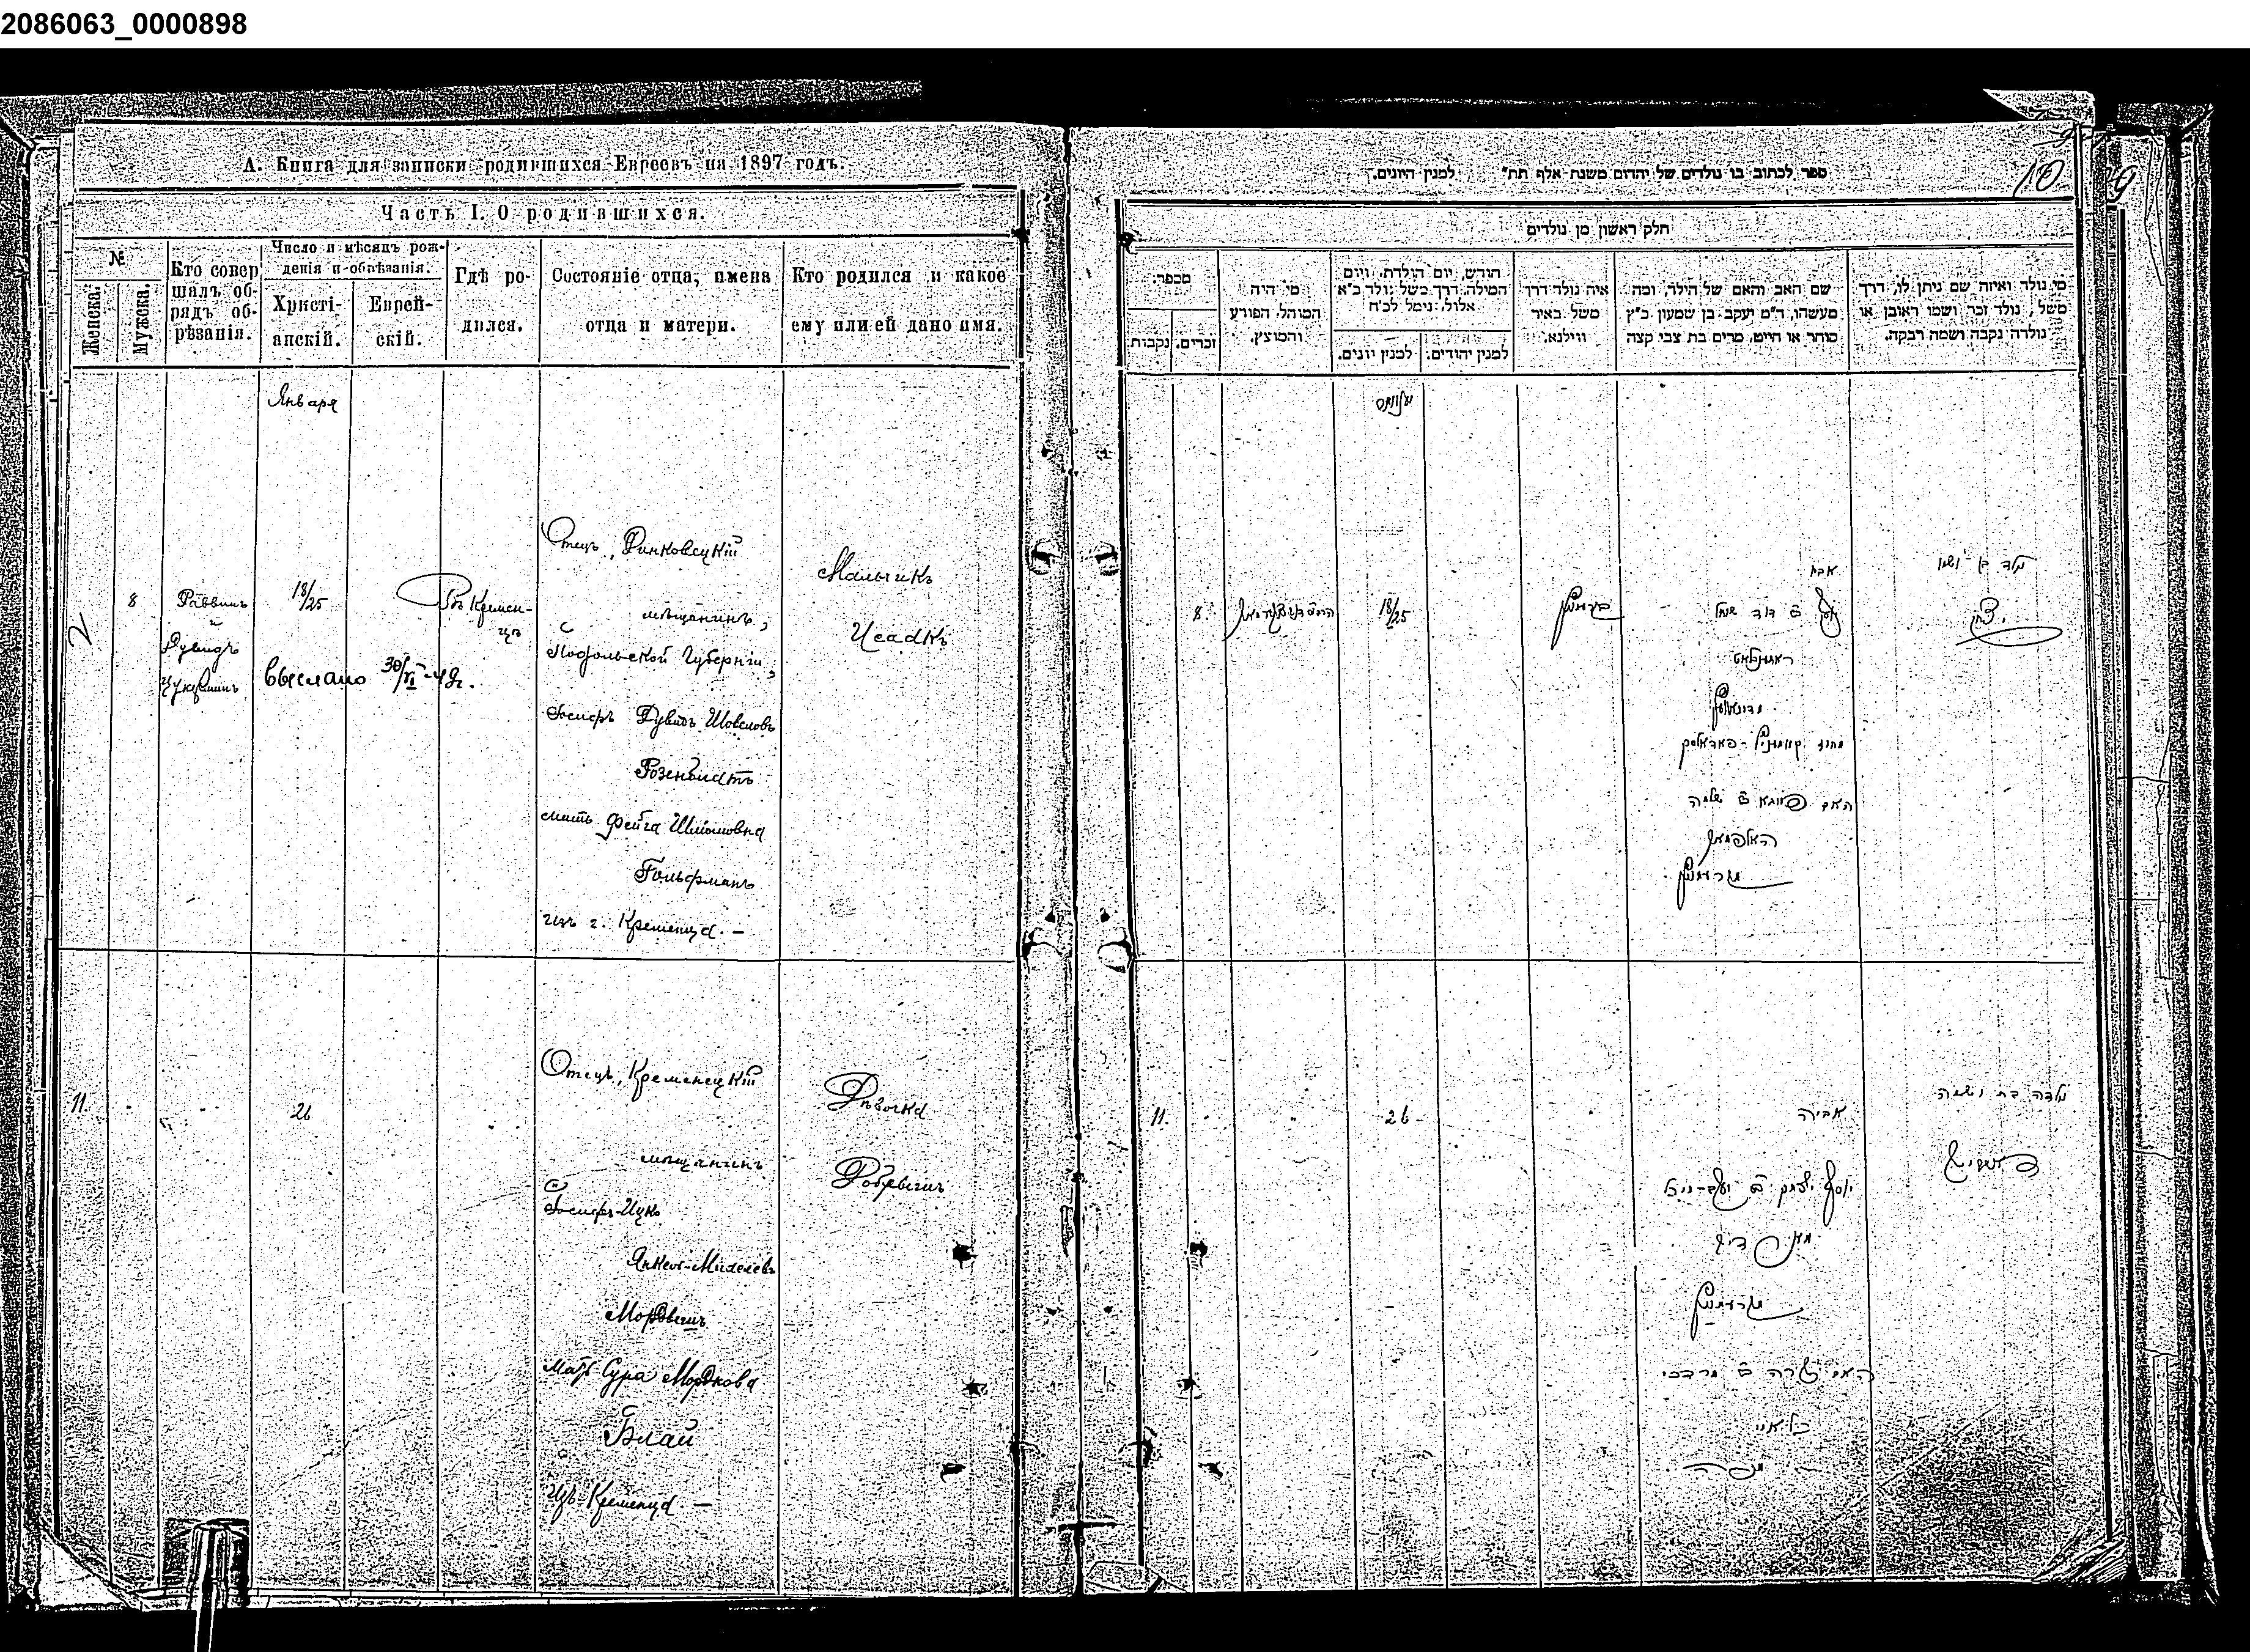 2086063_0000898
А. Книга для записки родившихся Евреевъ на 1897 годъ.
Часть I. О родившихся.
№
Женска.
Мужска.
Кто совер
шалъ об-
рядъ об-
рѣзанія.
Число и мѣсяцъ рож-
денія и обрѣзанія.
Христі-
анскій.
Еврей-
скій.
Гдѣ ро-
дился.
Состояніе отца, имена
отца и матери.
Кто родился и какое
ему или ей дано имя.
Января
8
Раввинъ
и
Дувидъ
Цукерманъ
18/25
выслано 30/VI-48г.
Въ Кремен-
цѣ
Отецъ, Динковецкій
мѣщанинъ,
Подольской Губерніи,
Іосифъ Дувидъ Шовеловъ
Розенблатъ
мать Фейга Шліомовна
Гольфманъ
изъ г. Кременца. —
Мальчикъ
Исаакъ
11.
26
Отецъ, Кременецкій
мѣщанинъ
Іосифъ-Ицко
Янкелъ-Михелевъ
Мать Сура Мордкова
Блай
Изъ Кременца —
Дѣвочка
ספר לכתוב בו נולדים של יהדום משנת אלף תת" למנין היונים.
10
9
חלק ראשון מן נולדים
מכפר.
נקבות
זכרים.
מי היה
המוהל, הפורע
והמוצץ.
חודש, יום הולדת, ויום
המילה, דרך משל נולד ב"א
אלול, נימל לכ"ח
למנין יונים.
למנין יהודים.
איה נולד דרך
משל, באיר
ווילנא.
שם האב והאם של הילד, ומה
מעשהו, ד"מ יעקב בן שמעין כ"ץ
סוחר או חייט, מרים בת צבי קצה
מי נולד ואיזה שם ניתן לו, דרך
משל, נולד זכר ושמו ראובן או
נולדה נקבה ושמה רבקה.
8
18/25
אביו
יוסף ב דוד שאול
ראזנבלאט
האם פייגא ב שלמה
נולד בן ושמו
יצחק
11.
26
אביה
יוסף יצחק ב יעקב-מיכל
האם שרה ב מרדכי
בלאיי
נולדה בת ושמה